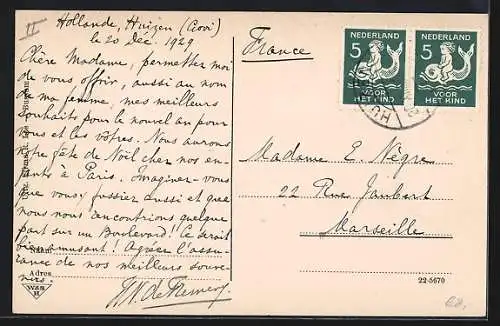 II
Hollande, Huizen (Gooi)
le 20 Déc. 1929
Chère Madame, permettez moi
de vous offrir, aussi au nom
de ma femme, mes meilleurs
souhaits pour le nouvel an pour
vous et les vôtres. Nous aurons
notre fête de Noël chez nos en-
fants à Paris. Imaginez-vous
que vous y fussiez aussi et que
nous nous rencontrions quelque
part sur un Boulevard! Ce serait
bien amusant! Agréez l'assu-
rance de nos meilleurs souve-
nirs.
Naam
Adres
France
NEDERLAND
5
VOOR
HET KIND
NEDERLAND
5
VOOR
HET KIND
Madame E. Nègre
22 Rue Jaubert
Marseille
22-5670